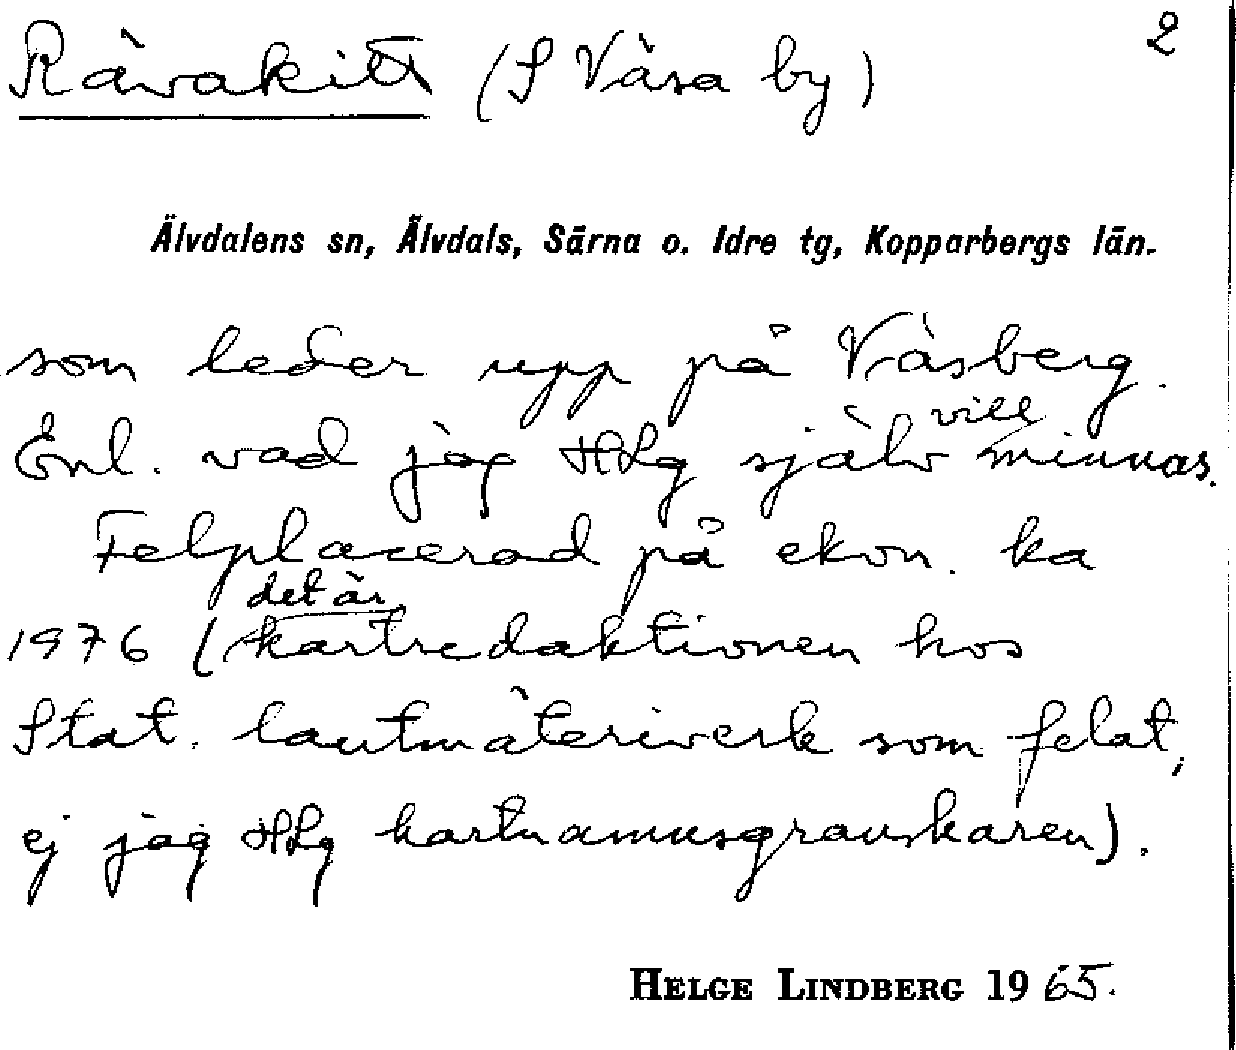 Rävakitt (S Väsa by) 2
Älvdalens sn, Älvdals, Särna o. Idre tg, Kopparbergs län.
som leder upp på Väsberg.
Enl. vad jag HLg själv vill minnas.
Felplacerad på ekon. ka
1976 (det är kartredaktionen hos
Stat. lantmäteriverk som felat,
ej jag HLg kartnamnsgranskaren).
HELGE LINDBERG 1965.